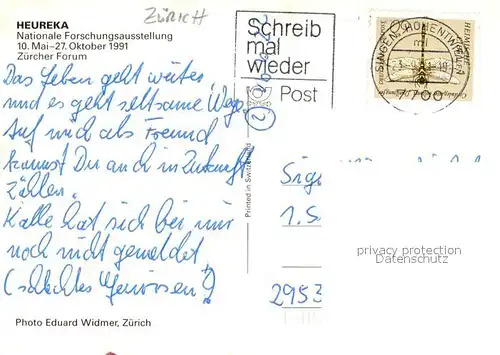 HEUREKA
Nationale Forschungsausstellung
10. Mai–27. Oktober 1991
Zürcher Forum
ZÜRICH
Schreib
mal
wieder
Post
SINGEN (HOHENTWIEL)
7700
Das Leben geht weiter,
und es geht seltsame Wege.
Auf mich als Freund
kannst Du auch in Zukunft
zählen.
Kalle hat sich bei mir
noch nicht gemeldet
(schlechtes Gewissen?)
Printed in Switzerland
Sig
1. S
2953
privacy protection
Datenschutz
Photo Eduard Widmer, Zürich